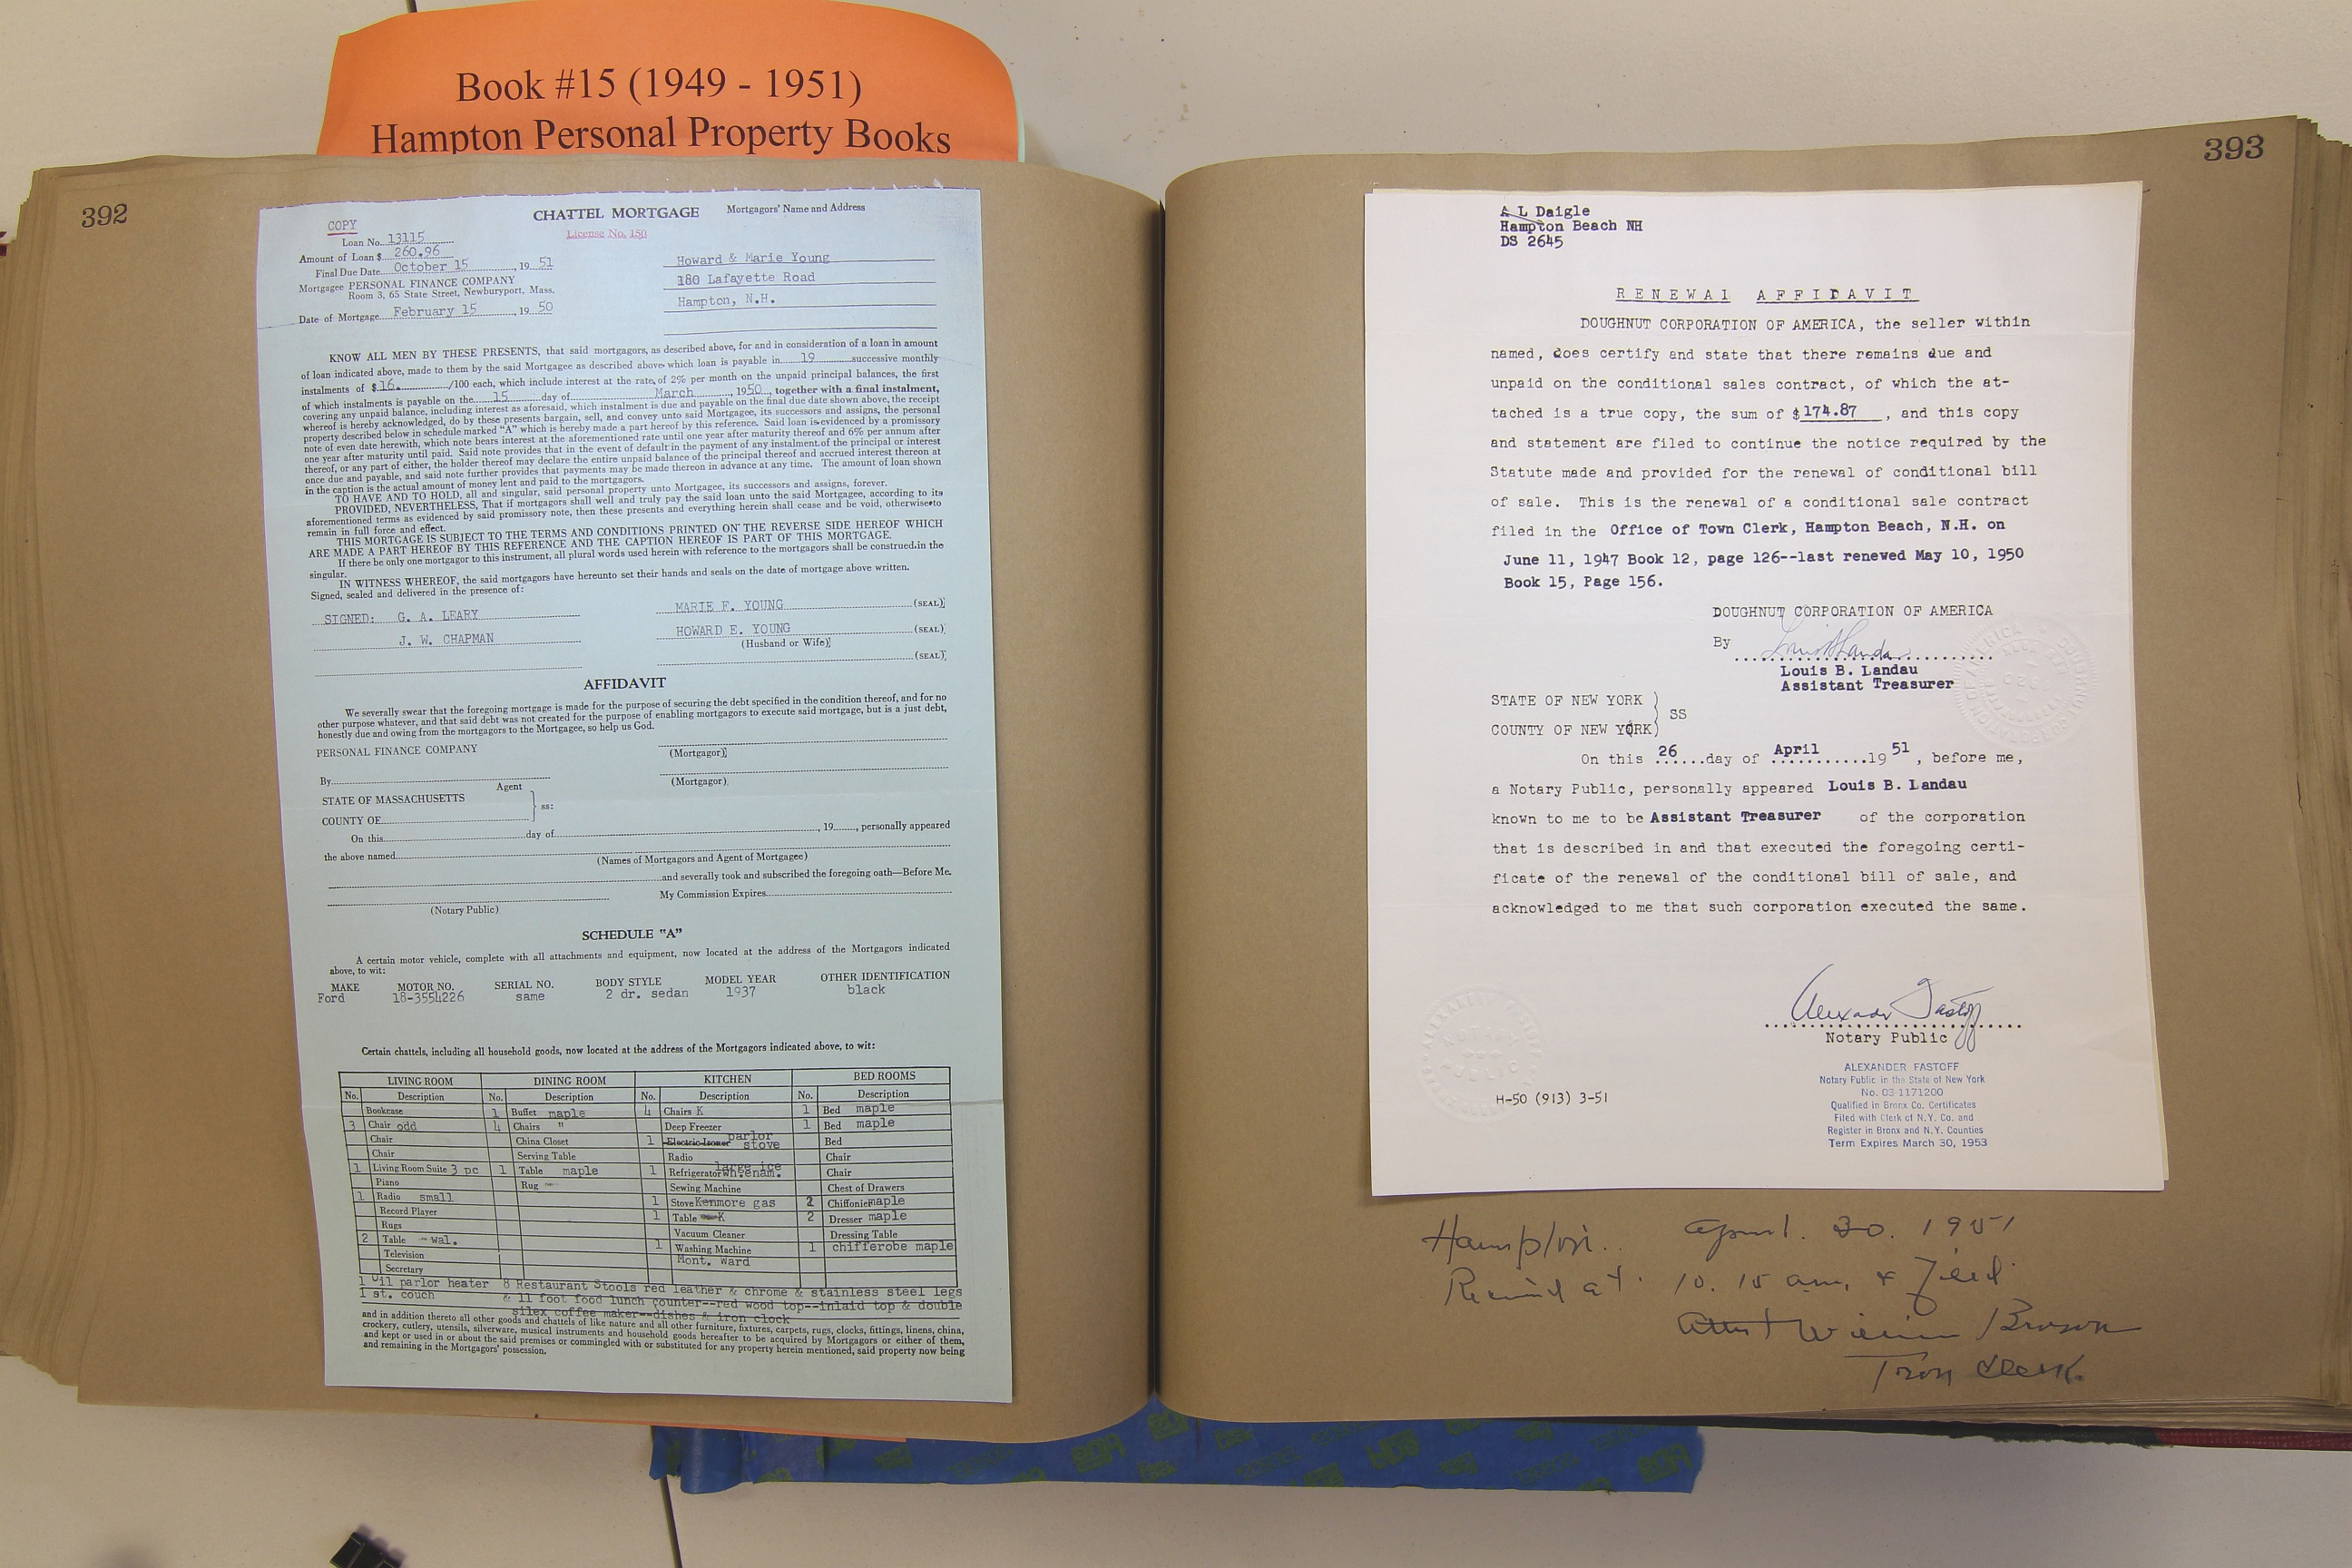 Book #15 (1949 - 1951)
Hampton Personal Property Books
392
COPY
CHATTEL MORTGAGE
License No. 150
Mortgagors' Name and Address
Loan No. 13115
Amount of Loan $ 260.96
Final Due Date October 15, 19 51
Mortgagee PERSONAL FINANCE COMPANY
Room 3, 65 State Street, Newburyport, Mass.
Date of Mortgage February 15, 19 50
Howard & Marie Young
180 Lafayette Road
Hampton, N.H.
KNOW ALL MEN BY THESE PRESENTS, that said mortgagors, as described above, for and in consideration of a loan in amount
of loan indicated above, made to them by the said Mortgagee as described above which loan is payable in 19 successive monthly
instalments of $ 16. /100 each, which include interest at the rate of 2% per month on the unpaid principal balances, the first
of which instalments is payable on the 15 day of March, 1950, together with a final instalment,
covering any unpaid balance, including interest as aforesaid, which instalment is due and payable on the final due date shown above, the receipt
whereof is hereby acknowledged, do by these presents bargain, sell, and convey unto said Mortgagee, its successors and assigns, the personal
property described below in schedule marked "A" which is hereby made a part hereof by this reference. Said loan is evidenced by a promissory
note of even date herewith, which note bears interest at the aforementioned rate until one year after maturity thereof and 6% per annum after
one year after maturity until paid. Said note provides that in the event of default in the payment of any instalment of the principal or interest
thereof, or any part of either, the holder thereof may declare the entire unpaid balance of the principal thereof and accrued interest thereon at
once due and payable, and said note further provides that payments may be made thereon in advance at any time. The amount of loan shown
in the caption is the actual amount of money lent and paid to the mortgagors.
TO HAVE AND TO HOLD, all and singular, said personal property unto Mortgagee, its successors and assigns, forever.
PROVIDED, NEVERTHELESS, That if mortgagors shall well and truly pay the said loan unto the said Mortgagee, according to its
aforementioned terms as evidenced by said promissory note, then these presents and everything herein shall cease and be void, otherwise to
remain in full force and effect.
THIS MORTGAGE IS SUBJECT TO THE TERMS AND CONDITIONS PRINTED ON THE REVERSE SIDE HEREOF WHICH
ARE MADE A PART HEREOF BY THIS REFERENCE AND THE CAPTION HEREOF IS PART OF THIS MORTGAGE.
If there be only one mortgagor to this instrument, all plural words used herein with reference to the mortgagors shall be construed in the
singular.
IN WITNESS WHEREOF, the said mortgagors have hereunto set their hands and seals on the date of mortgage above written.
Signed, sealed and delivered in the presence of:
SIGNED: G. A. LEARY MARIE F. YOUNG (SEAL)
J. W. CHAPMAN HOWARD E. YOUNG (SEAL)
(Husband or Wife)
(SEAL)
AFFIDAVIT
We severally swear that the foregoing mortgage is made for the purpose of securing the debt specified in the condition thereof, and for no
other purpose whatever, and that said debt was not created for the purpose of enabling mortgagors to execute said mortgage, but is a just debt,
honestly due and owing from the mortgagors to the Mortgagee, so help us God.
PERSONAL FINANCE COMPANY
(Mortgagor)
By
Agent
(Mortgagor)
STATE OF MASSACHUSETTS
COUNTY OF
ss:
On this day of , 19 , personally appeared
the above named
(Names of Mortgagors and Agent of Mortgagee)
and severally took and subscribed the foregoing oath—Before Me.
My Commission Expires
(Notary Public)
SCHEDULE "A"
A certain motor vehicle, complete with all attachments and equipment, now located at the address of the Mortgagors indicated
above, to wit:
MAKE MOTOR NO. SERIAL NO. BODY STYLE MODEL YEAR OTHER IDENTIFICATION
Ford 18-3554226 same 2 dr. sedan 1937 black
Certain chattels, including all household goods, now located at the address of the Mortgagors indicated above, to wit:
LIVING ROOM DINING ROOM KITCHEN BED ROOMS
No. Description No. Description No. Description No. Description
Bookcase 1 Buffet maple 4 Chairs K 1 Bed maple
3 Chair odd 4 Chairs " Deep Freezer 1 Bed maple
Chair China Closet 1 Electric Ironer parlor stove Bed
Chair Serving Table Radio Chair
1 Living Room Suite 3 pc 1 Table maple 1 Refrigerator large ice wh.enam. Chair
Piano Rug Sewing Machine Chest of Drawers
1 Radio small 1 Stove Kenmore gas 2 Chiffonier maple
Record Player 1 Table K 2 Dresser maple
Rugs Vacuum Cleaner Dressing Table
2 Table wal. 1 Washing Machine 1 chifferobe maple
Television Mont. Ward
Secretary
1 oil parlor heater 8 Restaurant Stools red leather & chrome & stainless steel legs
1 st. couch & 11 foot food lunch counter--red wood top--inlaid top & double
silex coffee maker--dishes & iron clock
and in addition thereto all other goods and chattels of like nature and all other furniture, fixtures, carpets, rugs, clocks, fittings, linens, china,
crockery, cutlery, utensils, silverware, musical instruments and household goods hereafter to be acquired by Mortgagors or either of them,
and kept or used in or about the said premises or commingled with or substituted for any property herein mentioned, said property now being
and remaining in the Mortgagors' possession.
393
A L Daigle
Hampton Beach NH
DS 2645
RENEWAL AFFIDAVIT
DOUGHNUT CORPORATION OF AMERICA, the seller within
named, does certify and state that there remains due and
unpaid on the conditional sales contract, of which the at-
tached is a true copy, the sum of $174.87, and this copy
and statement are filed to continue the notice required by the
Statute made and provided for the renewal of conditional bill
of sale. This is the renewal of a conditional sale contract
filed in the Office of Town Clerk, Hampton Beach, N.H. on
June 11, 1947 Book 12, page 126--last renewed May 10, 1950
Book 15, Page 156.
DOUGHNUT CORPORATION OF AMERICA
By Louis B Landau
Louis B. Landau
Assistant Treasurer
STATE OF NEW YORK
SS
COUNTY OF NEW YORK
On this 26 day of April 19 51, before me,
a Notary Public, personally appeared Louis B. Landau
known to me to be Assistant Treasurer of the corporation
that is described in and that executed the foregoing certi-
ficate of the renewal of the conditional bill of sale, and
acknowledged to me that such corporation executed the same.
Alexander Fastoff
Notary Public
ALEXANDER FASTOFF
Notary Public in the State of New York
No. 03-1171200
Qualified in Bronx Co. Certificates
Filed with Clerk of N.Y. Co. and
Register in Bronx and N.Y. Counties
Term Expires March 30, 1953
NOTARY
PUBLIC
H-50 (913) 3-51
Hampton. April. 30. 1951
Received at 10. 15 am, & Filed
Attest William Brown
Town Clerk.